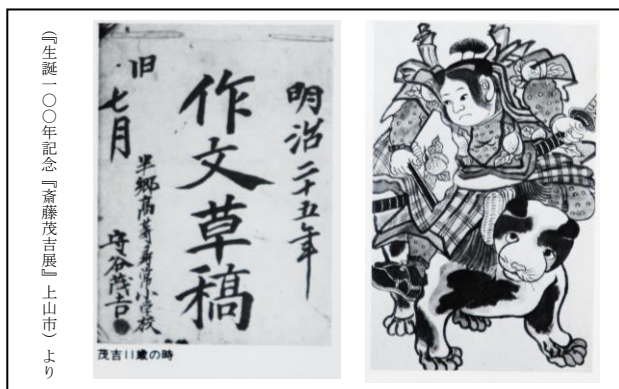 明治二十五年
作文草稿
旧
七月
半郷高等尋常小学校
守谷茂吉
茂吉11歳の時
(『生誕一〇〇年記念『斎藤茂吉展』上山市) より